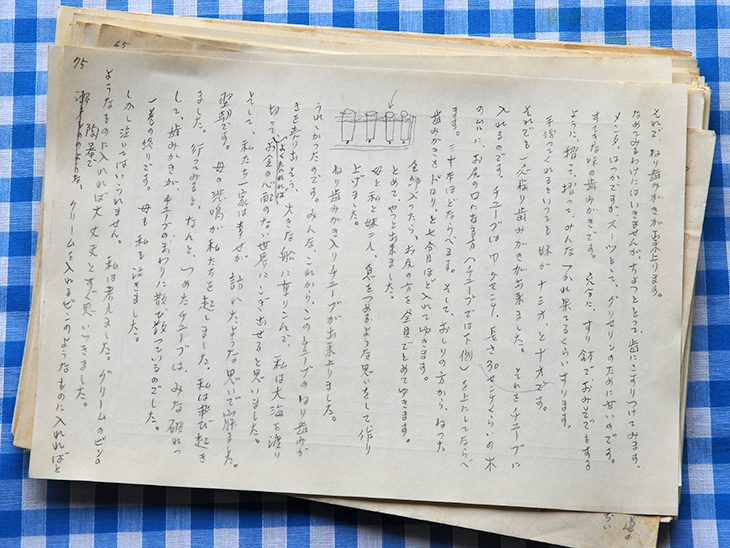 それで、ねり歯みがきが出来上ります。
なめてみるわけにはいきませんが、ちょっととって、歯にこすりつけてみます。
メンタ、はっかですが、スーッとして、グリセリンのために甘いのです。
すてきな味の歯みがきです。 すり鉢でおみそでもする
ように、摺って、摺って、みんなつかれ果てるくらいすります。
手伝ってくれるといっても妹が十三才、と十才です。
それでも一応 煉り歯みがきが出来ました。 それをチューブに
入れるのです。チューブは 巾 長さ30センチくらいの木
の台に、お尻の口になる方(チューブでは下側)を上にしてならべ
ます。三十本ほどならべます。そして、おしりの方から、ねった
歯みがきをドロリと七分目ほど入れてゆきます。
全部入ったら、お尻の方を 金具でとめてゆきます。
とめて、やっと出来ました。
母と私と妹二人、息をつめるような思いをして作り
上げました。
ねり歯みがき入りチューブが出来上りました。
うれしかったのです。みんな、これから、このチューブのねり歯みが
きを売り出そう、 大きな船に乗りこんで、 私は大海を渡り
よくうれれば
切って、お金の心配のない世界にこぎ出せると思いました。
そして、私たち一家は幸せが 訪れたような思いで床ました。
翌朝です。 母の悲鳴が私たちを起しました。私は飛び起き
ました。行ってみると、なんと、つめたチューブは、みな破れつ
して、歯みがきが、チューブのまわりに散り散っているのでした。
一巻の終りです。 母も私も泣きました。
しかし泣いてはいられません。 私は考えました。クリームのビンの
ようなものに入れれば大丈夫とすぐ思いつきました。
陶器で
クリームを入れるビンのようなものに入れればと
75
65